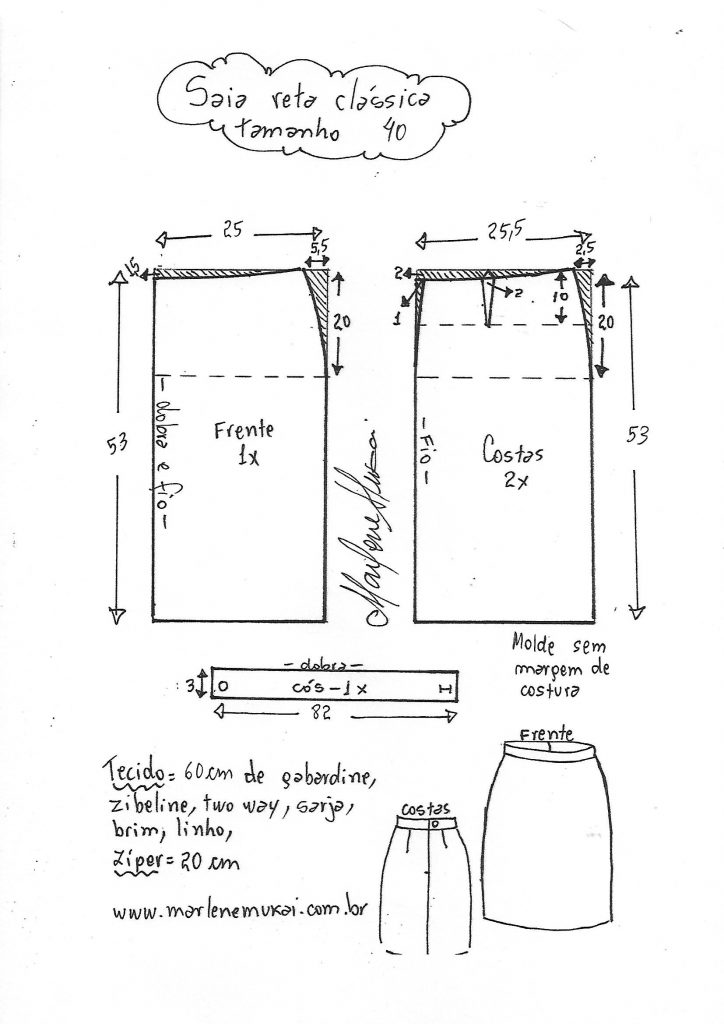 Saia reta clássica
tamanho 40
25
5,5
15
20
53
Frente
1x
dobra e fio
25,5
2,5
2
1
2
10
20
53
Fio
Costas
2x
Marlene Mukai
Molde sem
margem de
costura
dobra
3
cós - 1x
82
Tecido = 60 cm de gabardine,
zibeline, two way, sarja,
brim, linho,
Zíper = 20 cm
www.marlenemukai.com.br
costas
Frente